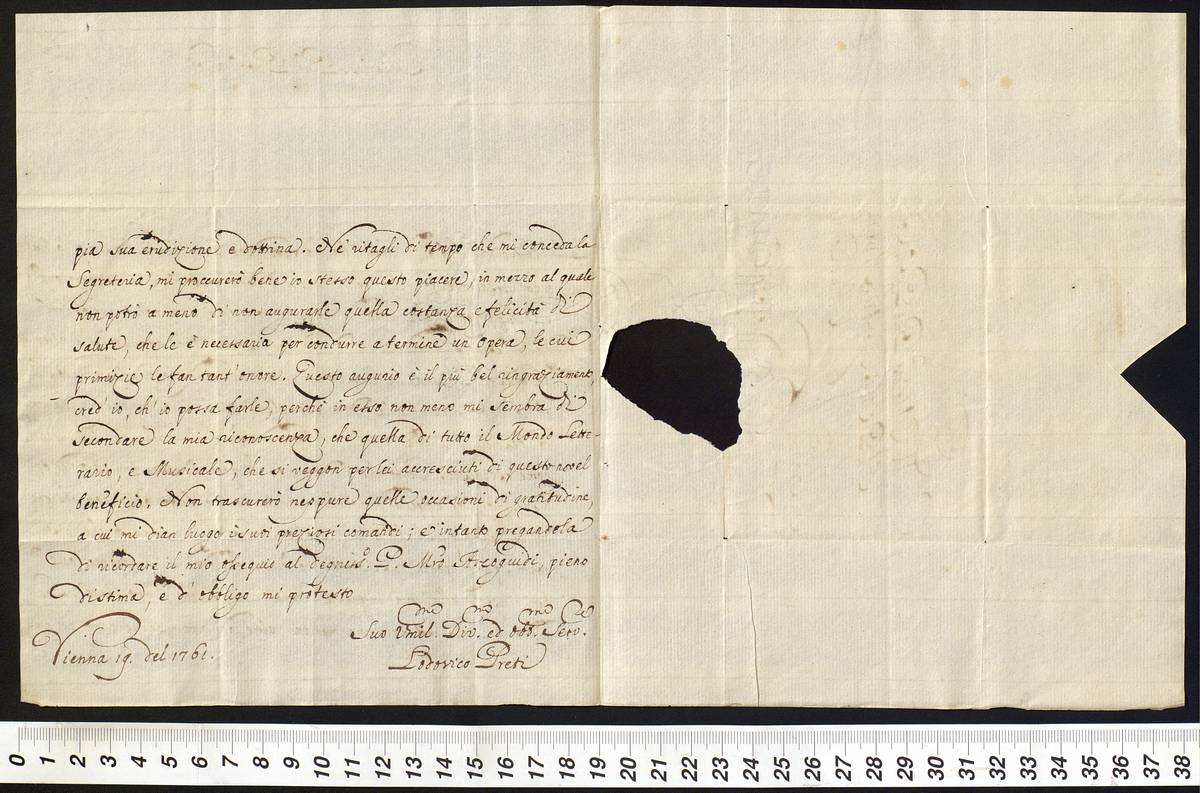 pia sua erudizione e dottrina. Ne' ritagli di tempo che mi conceda la
Segreteria, mi proccurerò bene io stesso questo piacere, in mezzo al quale
non potrò a meno di non augurarle quella costanza e felicità di
salute, che le è necessaria per condurre a termine un Opera, le cui
primizie le fan tant' onore. Questo augurio è il più bel ringraziamento,
cred' io, ch' io possa farle, perchè in esso non meno mi sembra di
secondare la mia riconoscenza, che quella di tutto il Mondo Lette-
rario, e Musicale, che si veggon per lei accresciuti di questo novel
beneficio. Non trascurerò neppure quelle occasioni di gratitudine,
a cui mi dian luogo i suoi preziosi comandi; e intanto pregandola
di ricordare il mio ossequio al degniss.o P. Mro
pieno
di stima, e d' obbligo mi protesto
Suo Umil.mo Div.mo ed obb.mo Serv.re
Vienna 19. del 1761.
Lodovico Preti
0 1 2 3 4 5 6 7 8 9 10 11 12 13 14 15 16 17 18 19 20 21 22 23 24 25 26 27 28 29 30 31 32 33 34 35 36 37 38